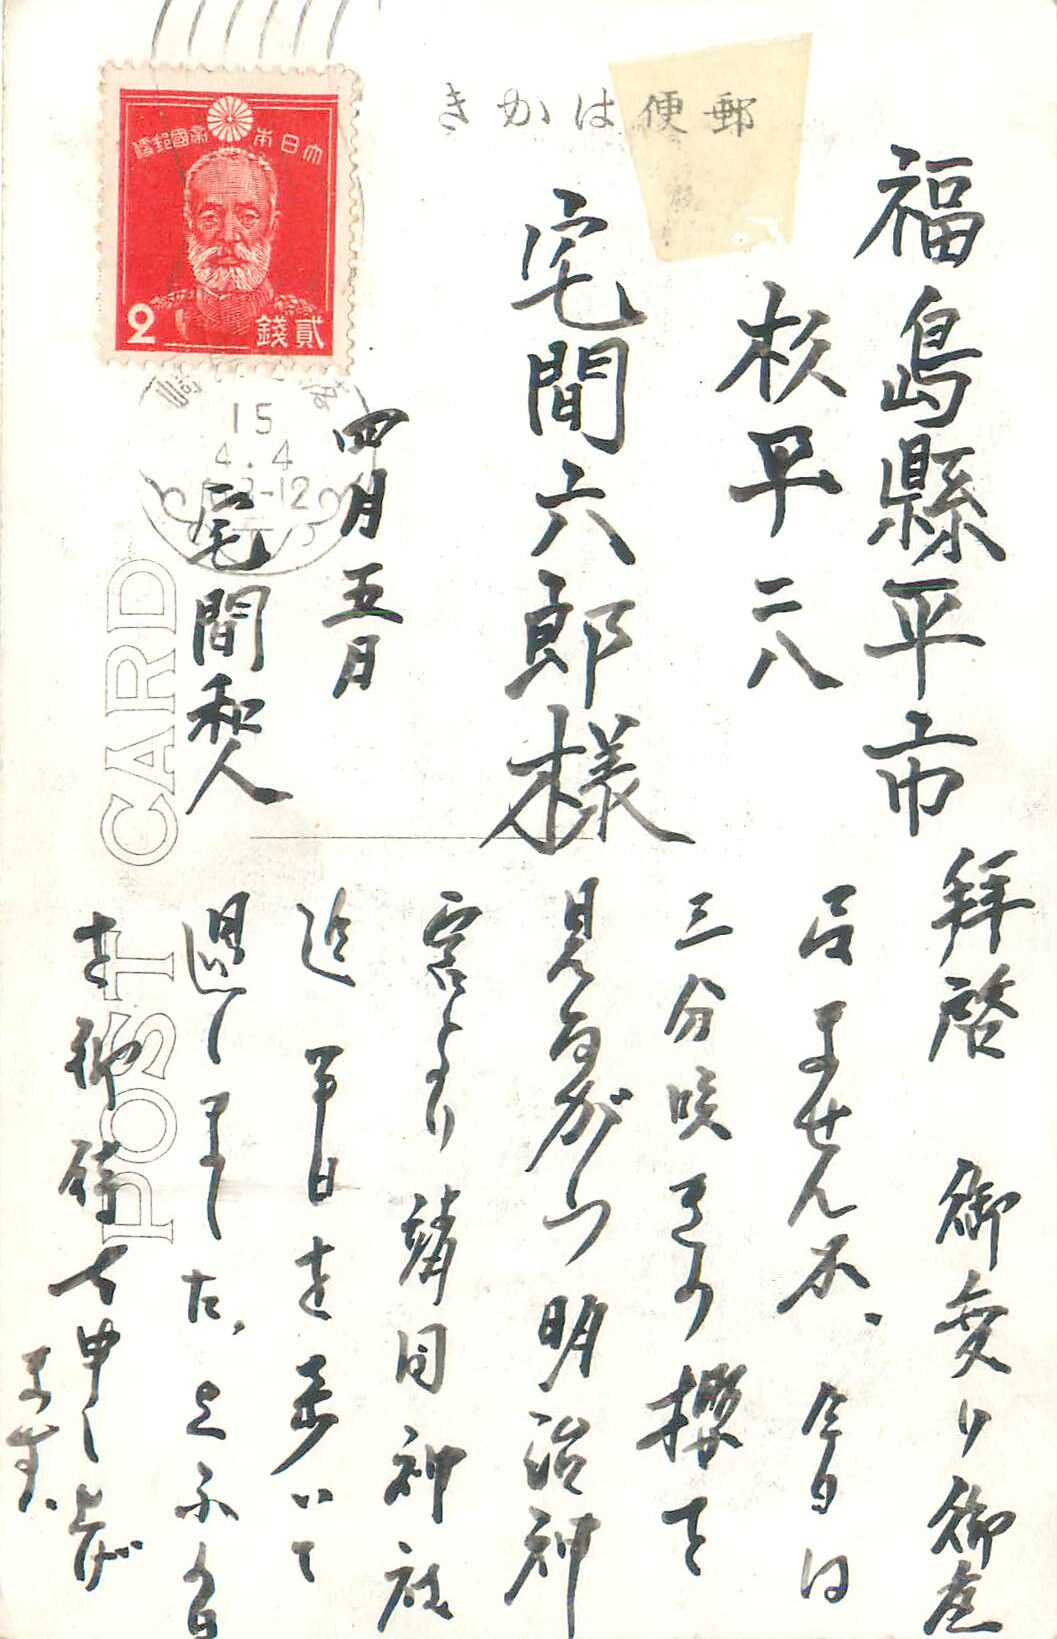 郵便はかき
大日本帝國郵便
2
貳錢
15
4.4
福島縣平市
杉平二八
宅間六郎様
四月五日
宅間和人
POST CARD
拝啓 御変り御座
居ませんか、今日は
三分咲きの櫻を
見ながら明治神
宮より靖国神社
迄半日を歩いて
過しました、
を御待ち申し上げ
ます、